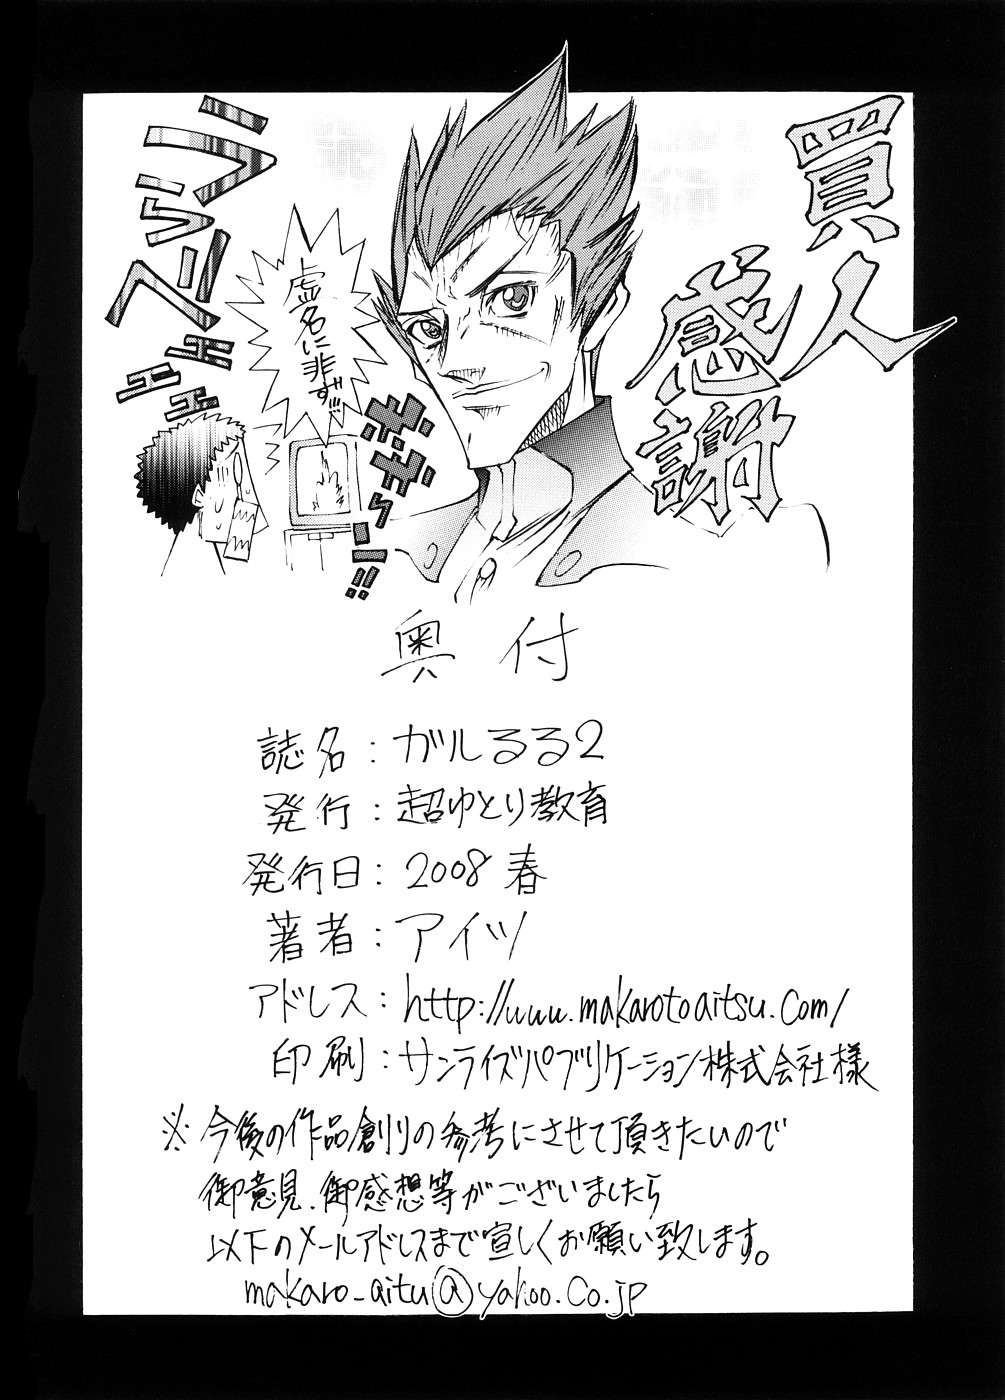 買人
感謝
ララらべべ
エエエ
虚名に非ず!!!
奥付
誌名：ガルるる2
発行：超ゆとり教育
発行日：2008 春
著者：アイツ
アドレス：http://www.makarotoaitsu.com/
印刷：サンライズパブリケーション株式会社様
※今後の作品創りの参考にさせて頂きたいので
御意見、御感想等がございましたら
以下のメールアドレスまで宜しくお願い致します。
makaro_aitu@yahoo.co.jp